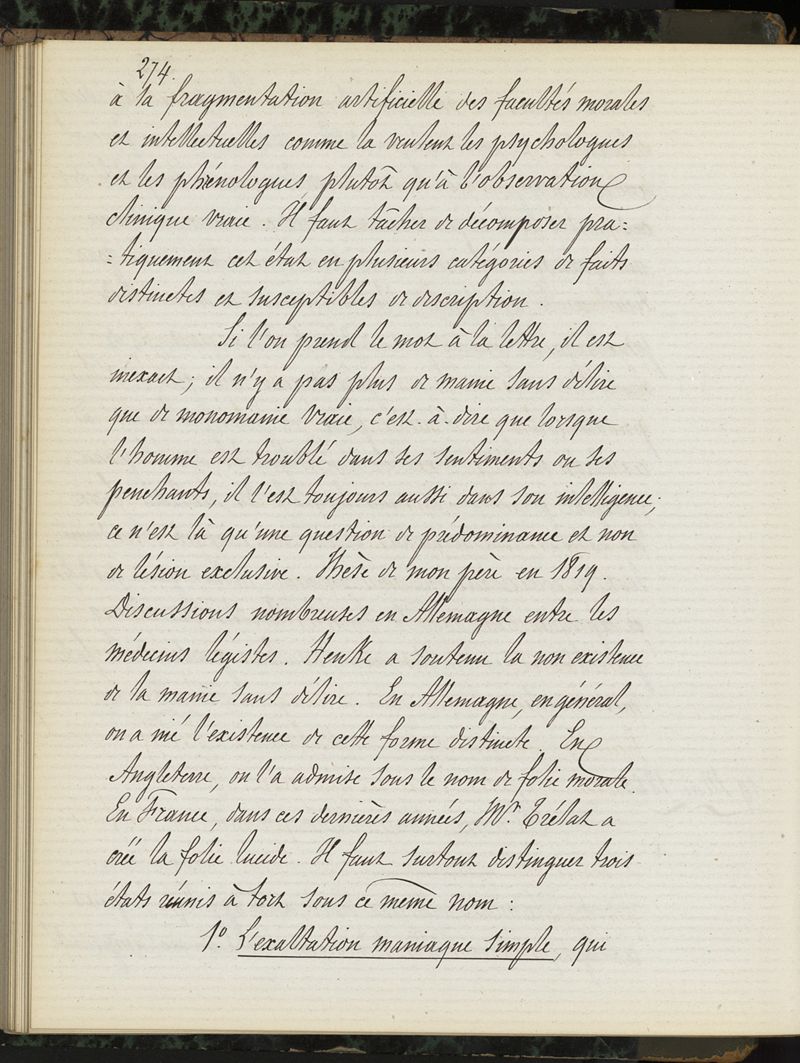 274.
à la fragmentation artificielle des facultés morales
et intellectuelles comme la veulent les psychologues
et les phrénologues, plutôt qu'à l'observation
clinique vraie. Il faut tâcher de décomposer pra=
=tiquement cet état en plusieurs catégories de faits
distinctes et susceptibles de description.
Si l'on prend le mot à la lettre, il est
inexact; il n'y a pas plus de manie sans délire
que de monomanie vraie, c'est-à-dire que lorsque
l'homme est troublé dans ses sentiments ou ses
penchants, il l'est toujours aussi dans son intelligence;
ce n'est là qu'une question de prédominance et non
de lésion exclusive. Thèse de mon père en 1819.
Discussions nombreuses en Allemagne entre les
médecins légistes. Henke a soutenu la non existence
de la manie sans délire. En Allemagne, en général,
on a nié l'existence de cette forme distincte. En
Angleterre, on l'a admise sous le nom de folie morale.
En France, dans ces dernières années, Mr. Trélat a
créé la folie lucide. Il faut surtout distinguer trois
états réunis à tort sous ce même nom:
1º. L'exaltation maniaque simple, qui